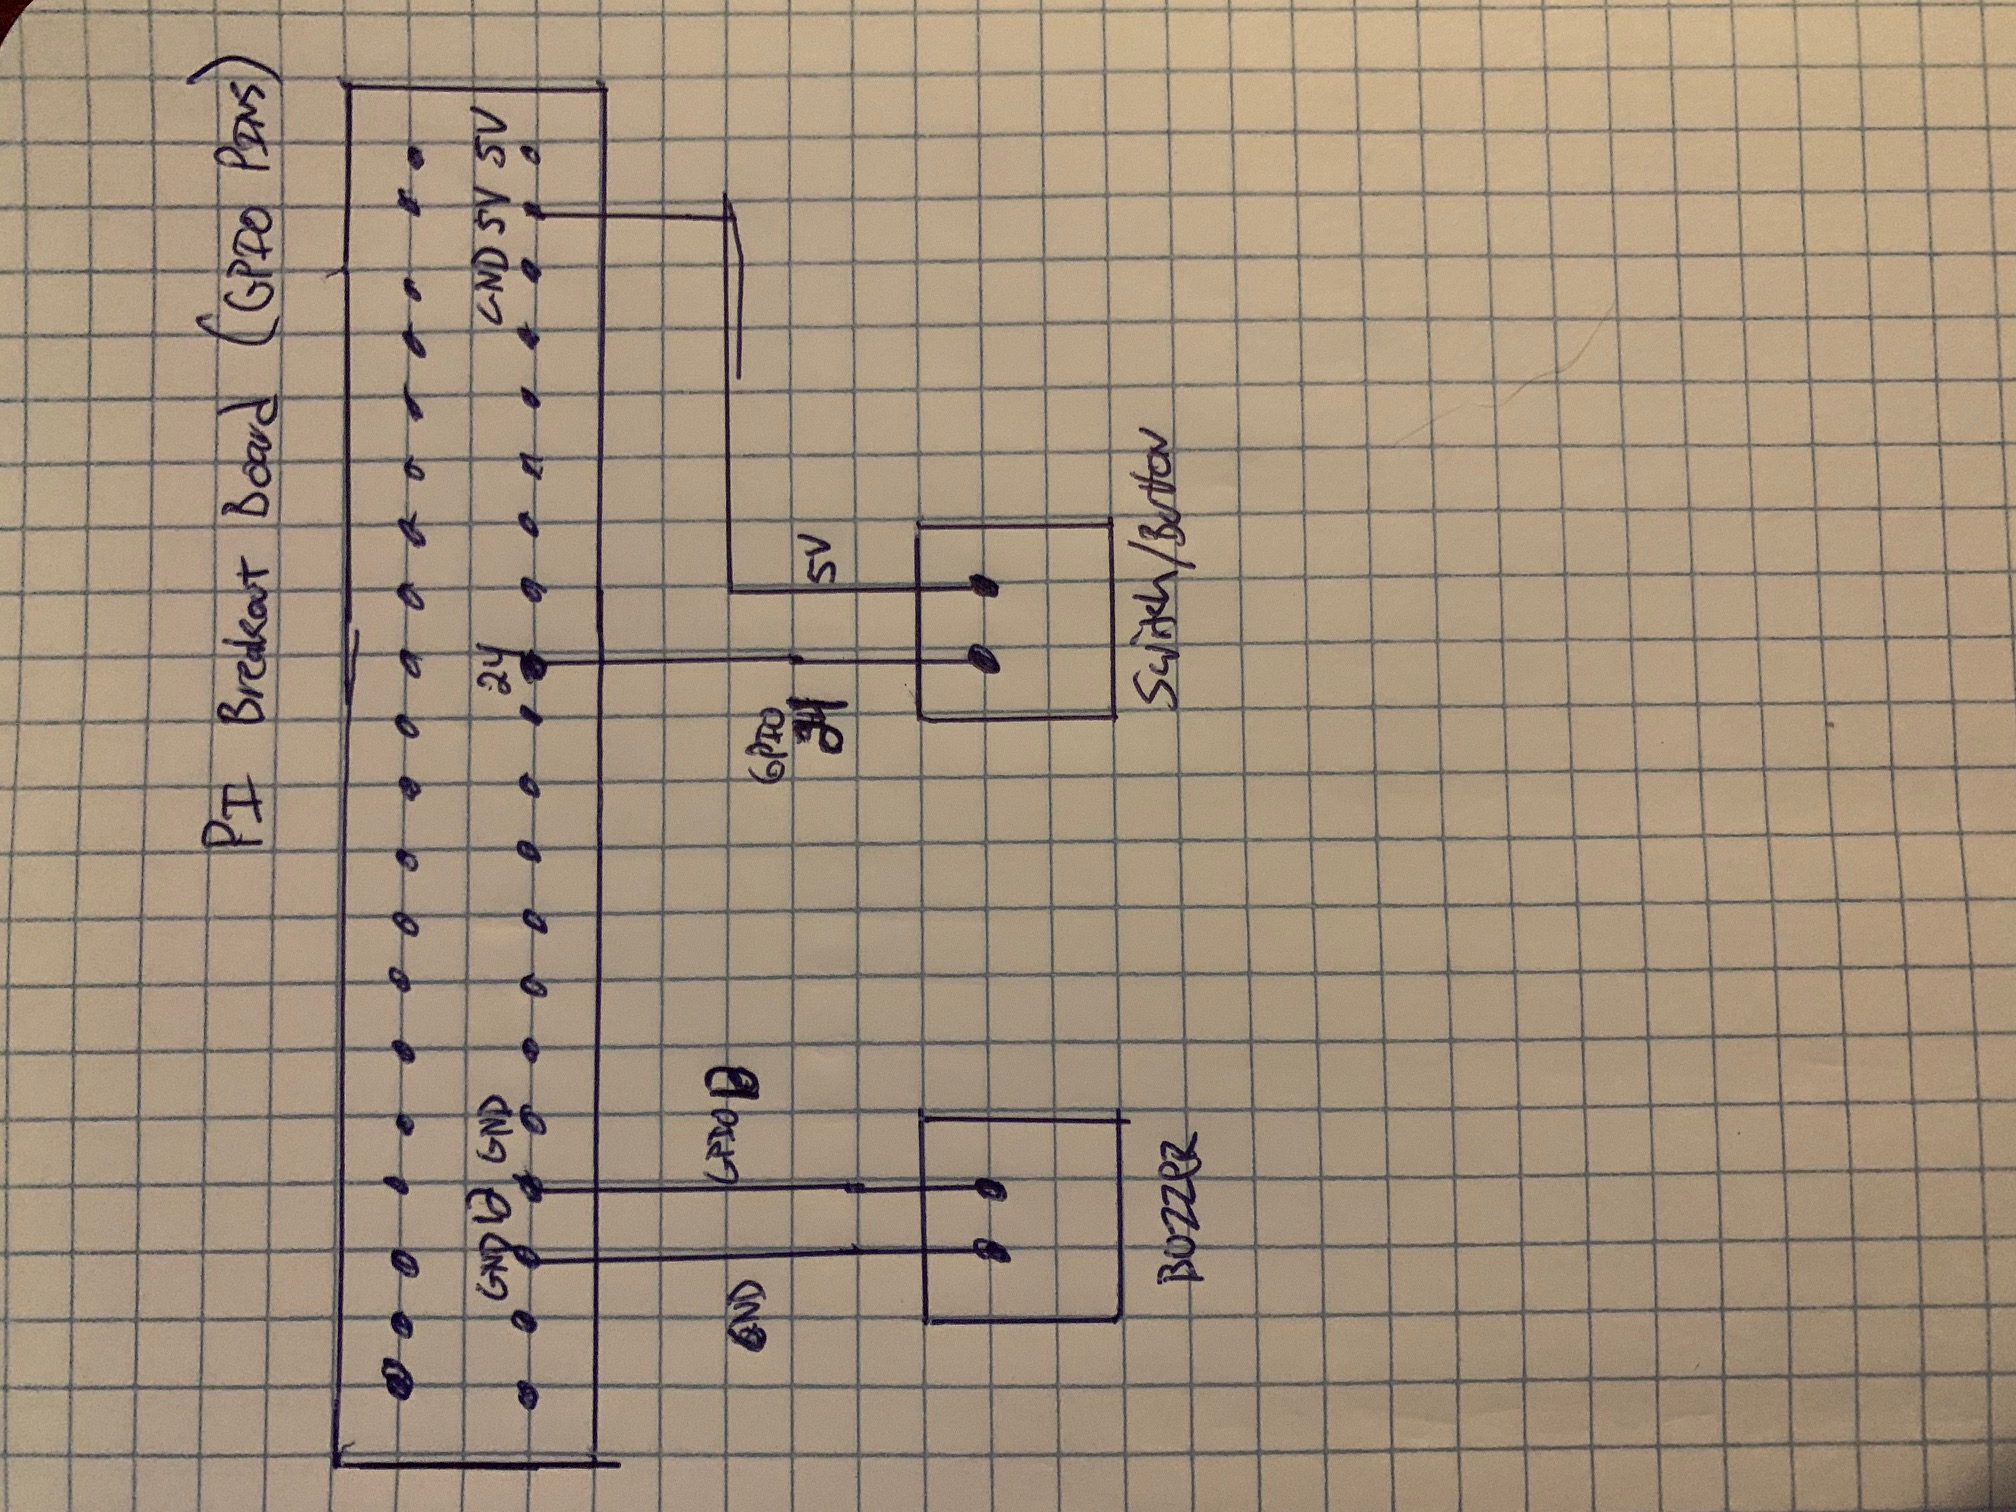 PI Breakout Board (GPIO PINS)
GND 12 GND 24 GND 5V 5V
GND GPIO
GPIO
24 5V
BUZZER Switch/Button